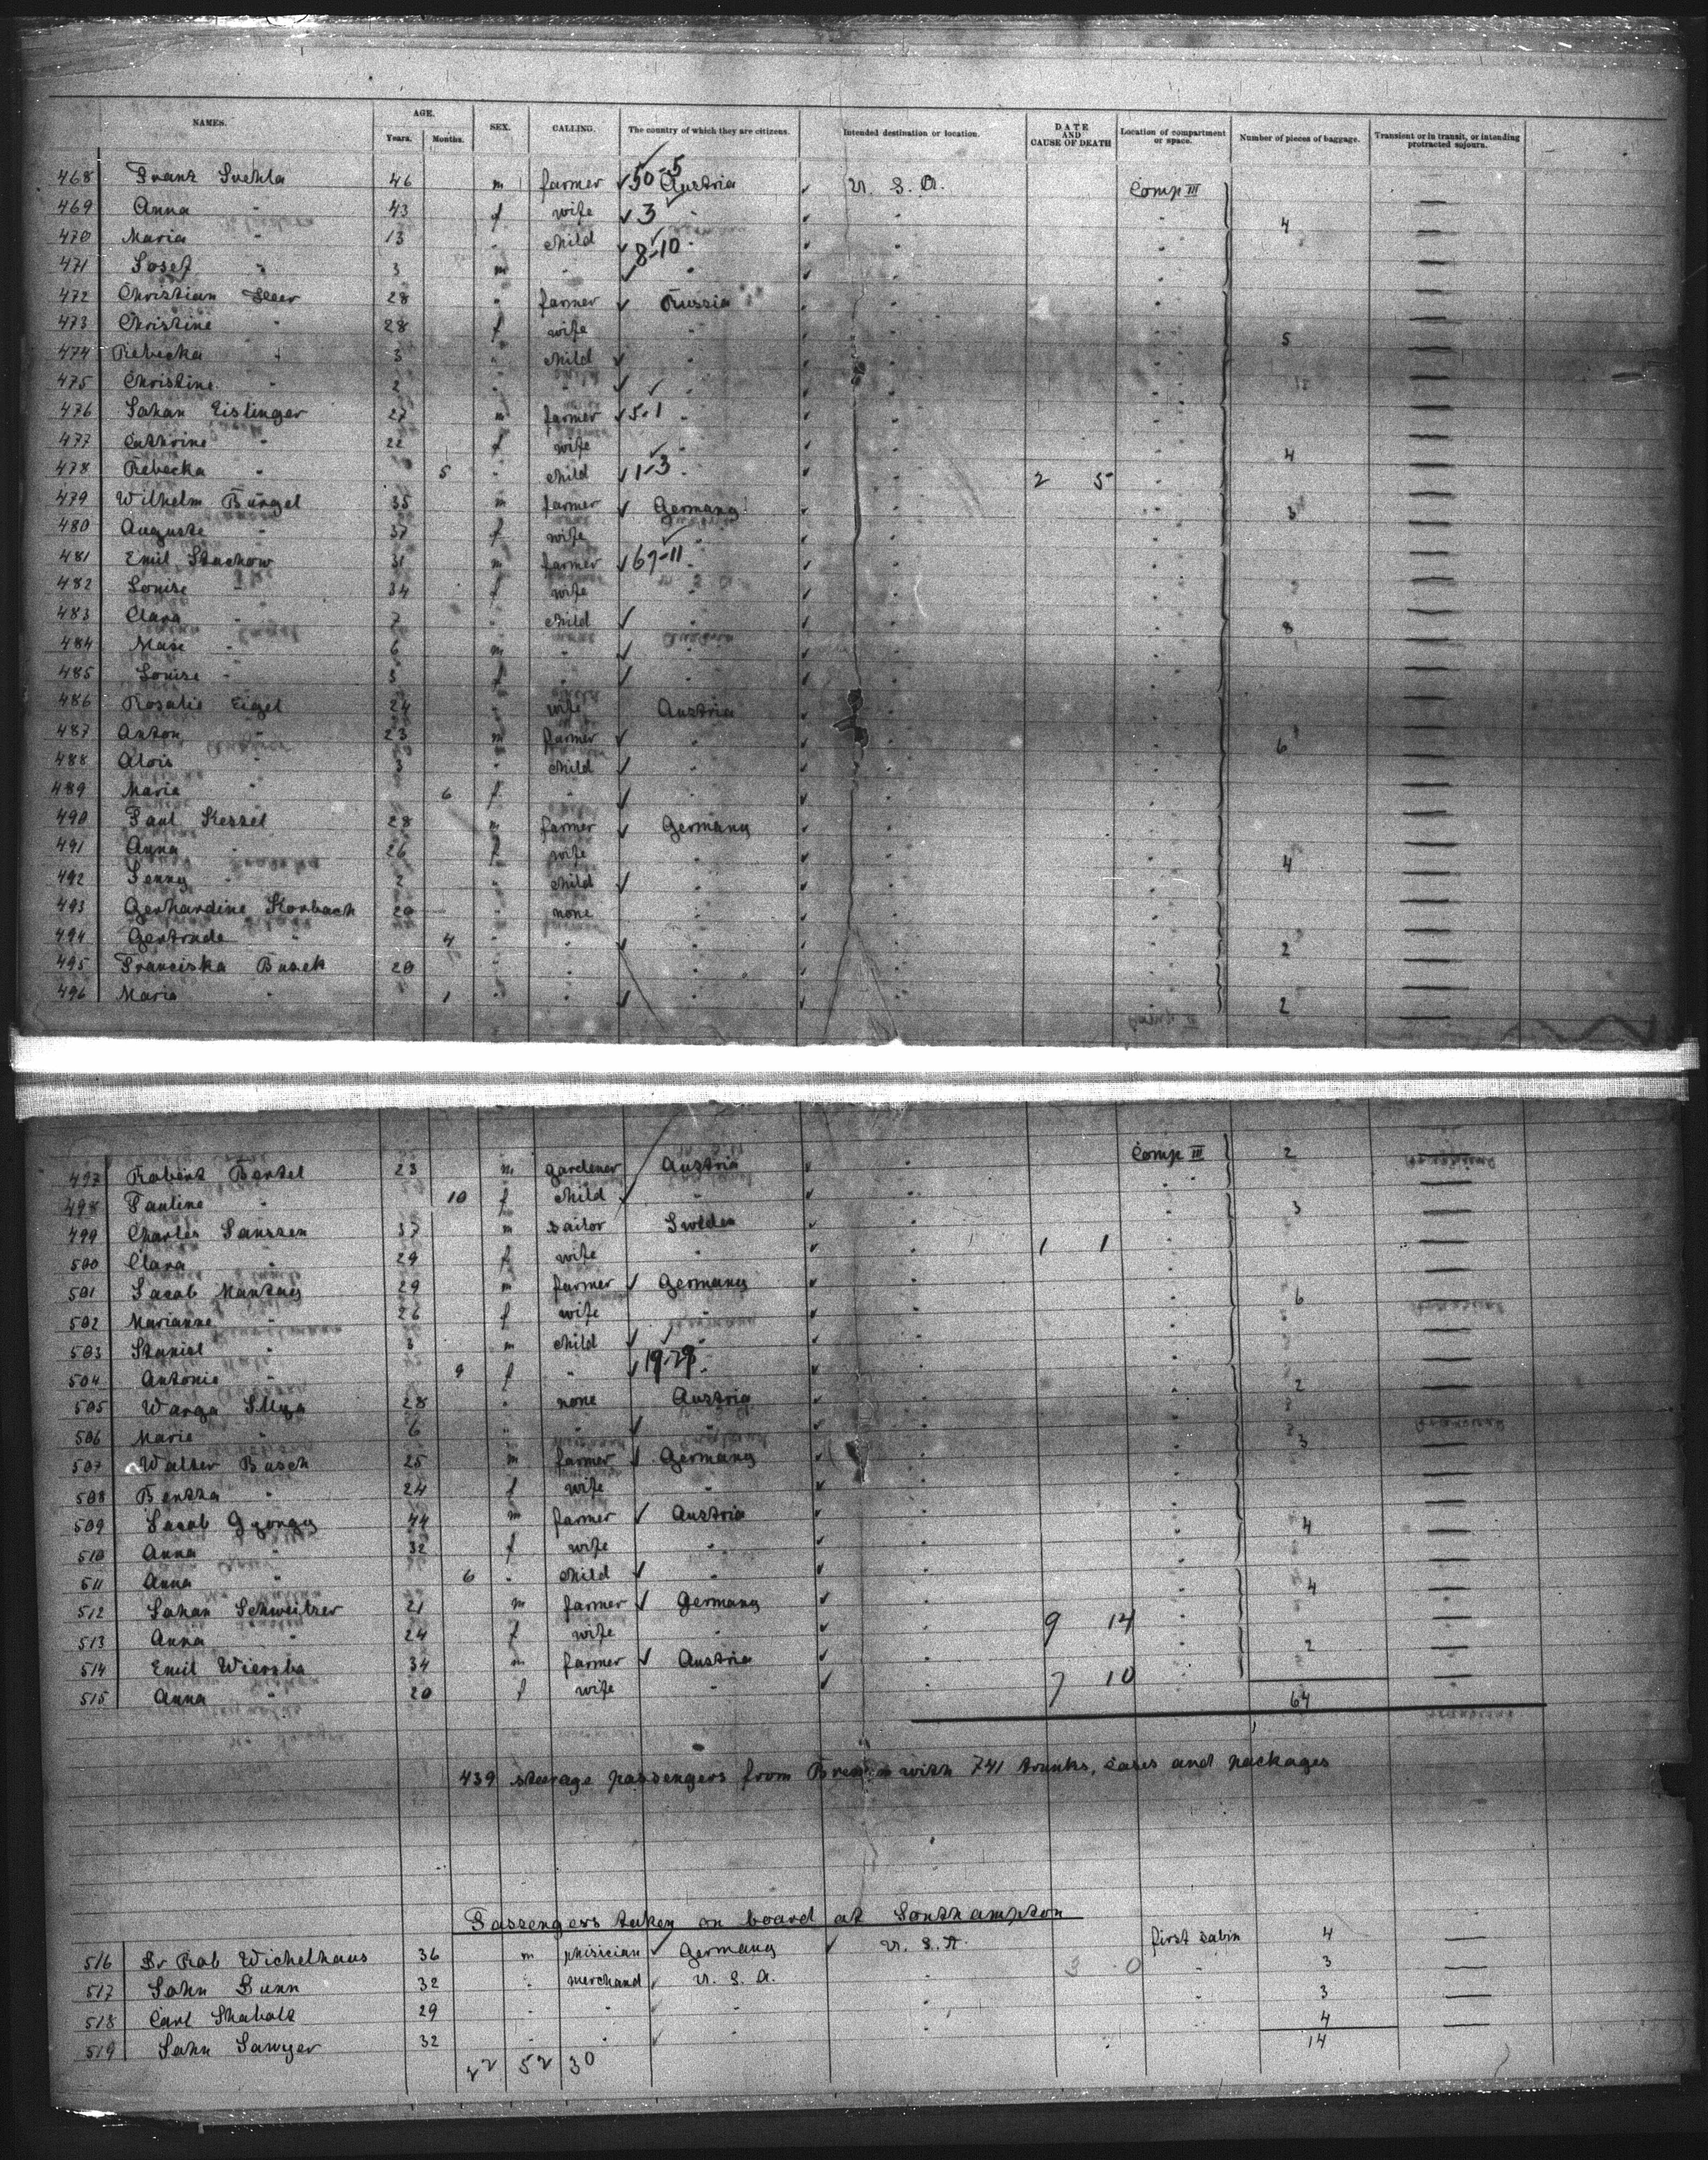 NAMES. AGE. Years. Months. SEX. CALLING. The country of which they are citizens. Intended destination or location. DATE AND CAUSE OF DEATH Location of compartment or space. Number of pieces of baggage. Transient or in transit, or intending protracted sojourn.
468 Franz Svehla 46 m farmer 50-5 Austria U. S. A. Comp III
469 Anna " 43 f wife 3 " " " 4
470 Maria " 13 " child 8-10 " " "
471 Josef " 3 m " " " "
472 Christian 28 " farmer Russia " "
473 Christine " 28 f wife " " " 5
474 Rebecka " 3 " child " " "
475 Christine " 2 " " " " "
476 Johan Eislinger 27 m farmer 5-1 " " "
477 Cathrine " 22 f wife " " " 4
478 Rebecka " 5 " child 1-3 " " 2 5 "
479 Wilhelm Büngel 35 m farmer Germany " " 3
480 Auguste " 37 f wife " " "
481 Emil Stachow 31 m farmer 67-11 " " "
482 Louise " 34 f wife " " "
483 Clara " 7 " child " " " 8
484 Max " 6 m " " " "
485 Louise " 3 f " " " "
486 Rosalie Eigel 24 " wife Austria " "
487 Anton " 23 m farmer " " " 6
488 Alois " 3 " child " " "
489 Maria " 6 f " " " "
490 Paul Kessel 28 m farmer Germany " "
491 Anna " 26 f wife " " " 4
492 Jenny " 2 " child " " "
493 Gerhardine Korbach 20 " none " " "
494 Gertrude " 4 " " " " " 2
495 Franciska Busek 20 " " " " "
496 Maria " 1 " " " " " 2
497 Robert Bertel 23 m gardener Austria " Comp III 2
498 Pauline " 10 f child " " "
499 Charles Janssen 37 m sailor Sweden " " 3
500 Clara " 29 f wife " " 1 1 "
501 Jacob Mantay 29 m farmer Germany " "
502 Marianne " 26 f wife " " " 6
503 Stanisl " 3 m child " " "
504 Antonie " 9 f " 19-29 " " "
505 Warga 28 " none Austria " " 2
506 Marie " 6 " " " " "
507 Walter Busch 25 m farmer Germany " " 3
508 Bertha " 24 f wife " " "
509 Jacob Gyorgy 44 m farmer Austria " "
510 Anna " 32 f wife " " " 4
511 Anna " 6 " child " " "
512 Johan Schweitzer 21 m farmer Germany " " 4
513 Anna " 24 f wife " " 9 14 "
514 Emil Wiersba 34 m farmer Austria " " 2
515 Anna " 20 f wife " " 7 10 "
64
439 steerage passengers from Bremen with 741 trunks, cases and packages
Passengers taken on board at Southampton
516 Dr Rob Wichelhaus 36 m phisician Germany U. S. A. first cabin 4
517 John Dunn 32 " merchand U. S. A. " 3 0 " 3
518 Carl 29 " " " " " 3
519 John Sawyer 32 " " " " " 4
14
22 52 30